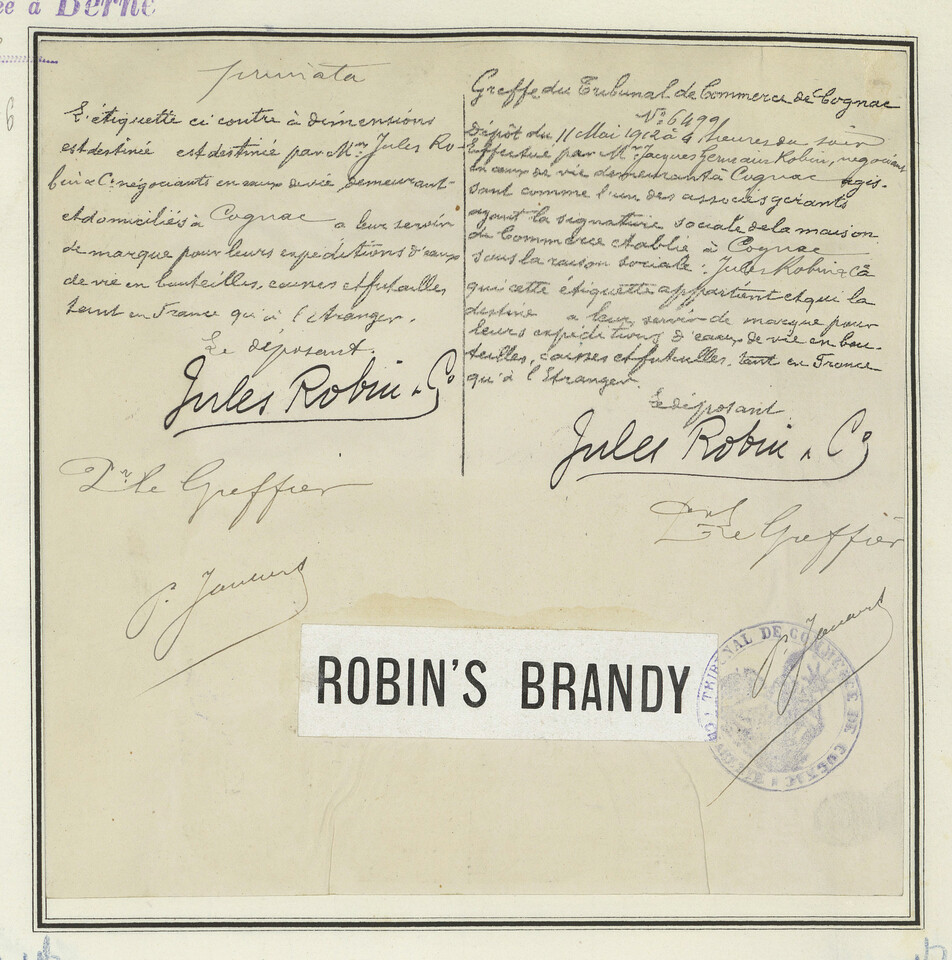 ée à Berne
6
primata
L'étiquette ci contre à dimensions
est destinée est destinée par Mrs Jules Ro-
bin & Co négociants en eaux de vie demeurant
et domiciliés à Cognac a leur servir
de marque pour leurs expéditions d'eaux
de vie en bouteilles, caisses et futailles
tant en France qu'à l'étranger.
Le déposant.
Jules Robin & Co
Pr le Greffier
Greffe du Tribunal de Commerce de Cognac
No 6499
Dépôt du 11 Mai 1912 à 4 heures du soir
Effectué par Mr Jacques Robin, négociant
en eaux de vie demeurant à Cognac agis-
sant comme l'un des associés gérants
ayant la signature sociale de la maison
de Commerce établie à Cognac
sous la raison sociale : Jules Robin & Co
qui cette etiquette appartient et qui la
destine a leur servir de marque pour
leurs expéditions d'eaux de vie en bou-
teilles, caisses et futailles, tant en France
qu'à l'Etranger.
Le déposant
Jules Robin & Co
Le Greffier
ROBIN'S BRANDY
TRIBUNAL DE COMMERCE DE COGNAC